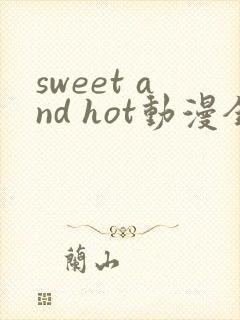 sweet a
nd hot動漫全
蘭山